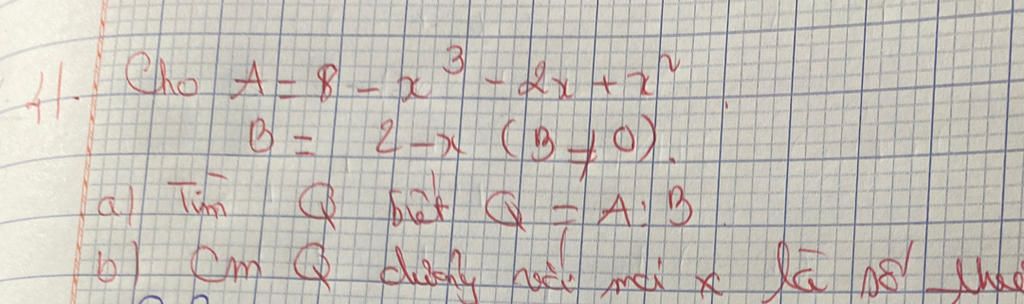 41. Cho A = 8 - x³ - 2x + x²
B = 2 - x (B ≠ 0).
a) Tìm Q biết Q = A : B
b) Cm Q dương với mọi x là số